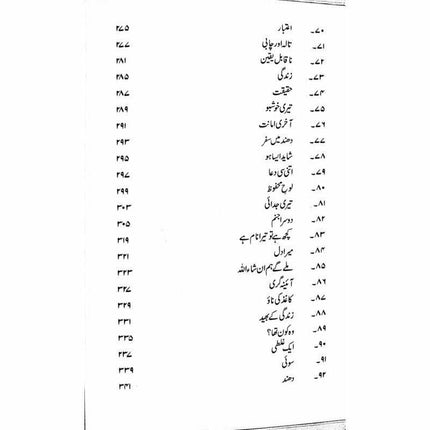 ۷۰۔ اعتبار ۲۷۵
۷۱۔ تالہ اور چابی ۲۷۷
۷۲۔ ناقابل یقین ۲۸۱
۷۳۔ زندگی ۲۸۵
۷۴۔ حقیقت ۲۸۷
۷۵۔ تیری خوشبو ۲۸۹
۷۶۔ آخری امانت ۲۹۱
۷۷۔ دھند میں سفر ۲۹۳
۷۸۔ شاید ایسا ہو ۲۹۵
۷۹۔ اتنی سی دعا ۲۹۷
۸۰۔ لوح محفوظ ۲۹۹
۸۱۔ تیری جدائی ۳۰۳
۸۲۔ دوسرا جنم ۳۰۵
۸۳۔ کچھ ہے تو تیرا نام ہے ۳۱۹
۸۴۔ میرا دل ۳۲۱
۸۵۔ ملے گے ہم ان شاء اللہ ۳۲۳
۸۶۔ آئینہ گری ۳۲۷
۸۷۔ کاغذ کی ناؤ ۳۲۹
۸۸۔ زندگی کے بھید ۳۳۱
۸۹۔ وہ کون تھا؟ ۳۳۵
۹۰۔ ایک غلطی ۲۳۷
۹۱۔ سوئی ۳۳۹
۹۲۔ دھند ۳۴۱